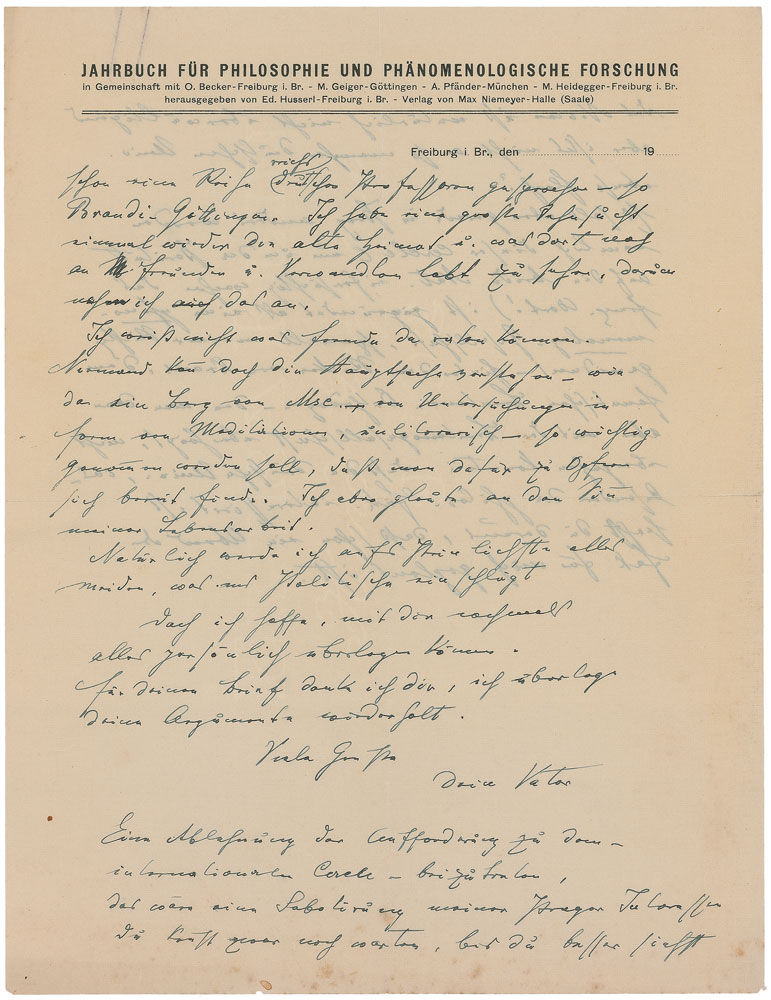 JAHRBUCH FÜR PHILOSOPHIE UND PHÄNOMENOLOGISCHE FORSCHUNG
in Gemeinschaft mit O. Becker-Freiburg i. Br. - M. Geiger-Göttingen - A. Pfänder-München - M. Heidegger-Freiburg i. Br.
herausgegeben von Ed. Husserl-Freiburg i. Br. - Verlag von Max Niemeyer-Halle (Saale)
Freiburg i. Br., den 19
reichs
schon eine Reihe deutscher Professoren gesprochen – so
Brandi-Göttingen. Ich habe eine große Sehnsucht
einmal wieder die alte Heimat u. was dort noch
an Freunden u. Verwandten lebt zu sehen, darum
nehm ich auch das an.
Ich weiß nicht was fremde da raten können.
Niemand kan doch die Hauptsache verstehen – wie
das ein Berg von Msc. von Untersuchungen in
form von Meditationen, unliterarisch – so wichtig
genommen werden soll, daß man dafür zu Opfern
sich bereit finde. Ich eben glaube an den Sin
meiner Lebensarbeit.
Natürlich werde ich aufs Peinlichste alles
meiden, was ins Politische einschlägt
Doch ich hoffe, mit dir nochmals
alles persönlich überlegen können.
Für deinen Brief dank ich dir, ich überlege
deine Argumente wiederholt.
Viele Grüße
Dein Vater
Eine Ablehnung der Aufforderung zu dem –
internationalen Cercle – beizutreten,
das wäre eine Sabotirung meiner Prager Interessen
Du kanst zwar noch warten, bis du besser siehst